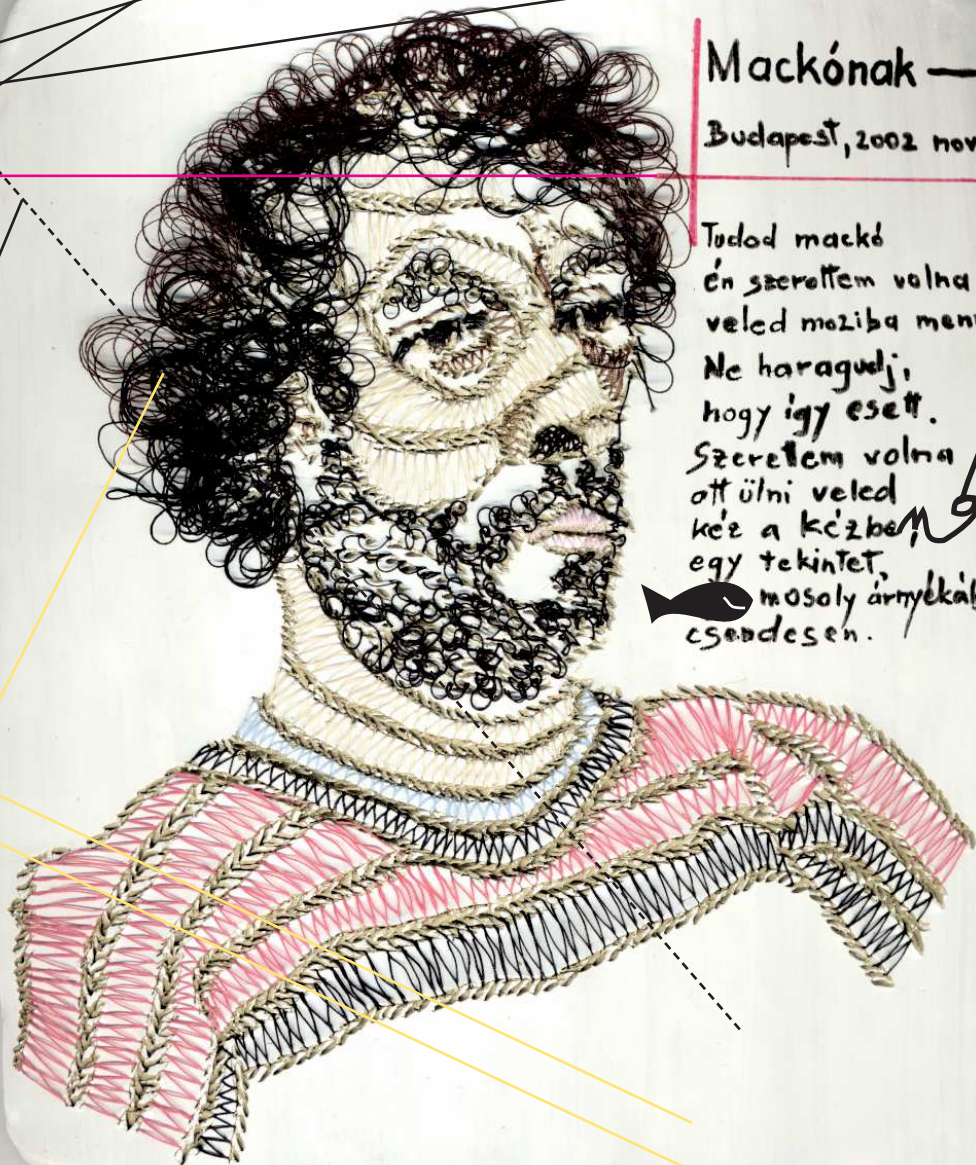 Mackónak —
Budapest, 2002 nov
Tudod mackó
én szerettem volna
veled moziba men
Ne haragudj,
hogy így esett.
Szerettem volna
ott ülni veled
kéz a kézben,
egy tekintet,
mosoly árnyéká
csendesen.